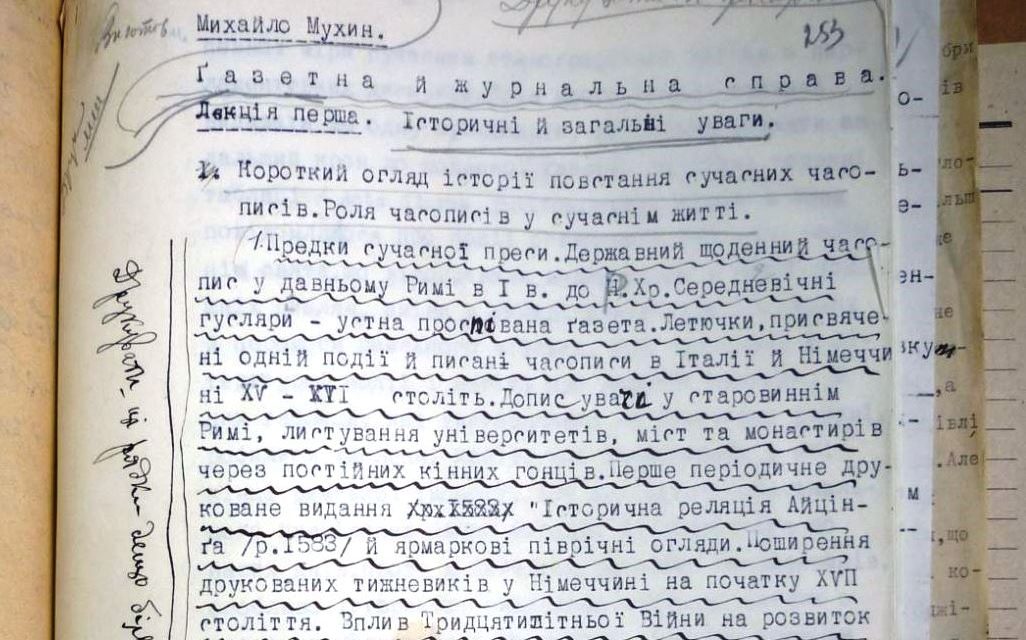 253
Михайло Мухин.
Ґазетна й журнальна справа.
Лекція перша. Історичні й загальні уваги.
1. Короткий огляд історії повстання сучасних часо-
писів.Роля часописів у сучаснім житті.
1.Предки сучасної преси.Державний щоденний часо-
пис у давньому Римі в I в. до Р.Хр.Середневічні
гусляри - устна проспівана ґазета.Летючки,присвяче-
ні одній події й писані часописи в Італії й Німеччи
ні XV - XVI століть.Дописувачі у старовиннім
Римі, листування університетів, міст та монастирів
через постійних кінних гонців.Перше періодичне дру-
коване видання "Історична реляція Айцін-
ґа /р.1583/ й ярмаркові піврічні огляди.Поширення
друкованих тижневиків у Німеччині на початку XVП
століття. Вплив Тридцятилітньої Війни на розвиток
Друкувати ці рядки